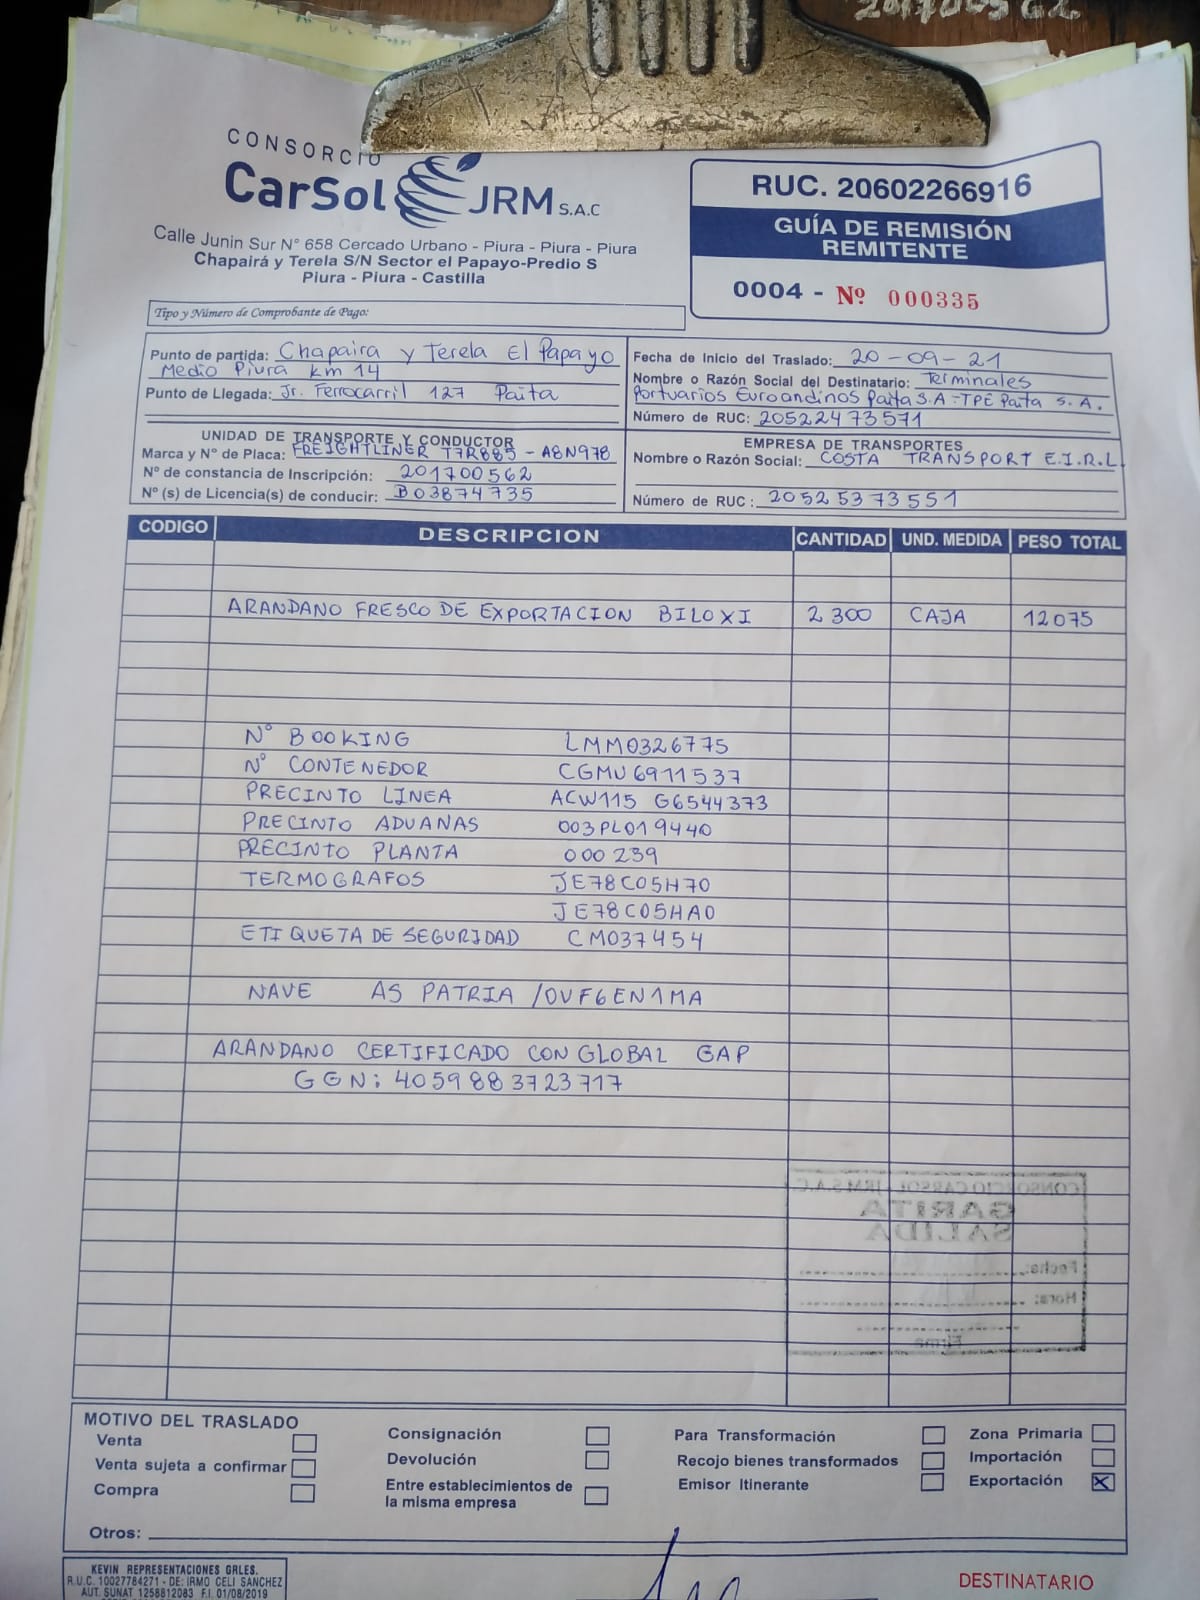 201700562
CONSORCIO
CarSol JRM S.A.C
Calle Junin Sur N° 658 Cercado Urbano - Piura - Piura - Piura
Chapairá y Terela S/N Sector el Papayo-Predio S
Piura - Piura - Castilla
RUC. 20602266916
GUÍA DE REMISIÓN
REMITENTE
0004 - Nº 000335
Tipo y Número de Comprobante de Pago:
Punto de partida: Chapaira y Terela El Papayo
Medio Piura km 14
Punto de Llegada: Jr. Ferrocarril 127 Paita
Fecha de Inicio del Traslado: 20-09-21
Nombre o Razón Social del Destinatario: Terminales
Portuarios Euroandinos Paita S.A-TPE Paita S.A.
Número de RUC: 20522473571
UNIDAD DE TRANSPORTE Y CONDUCTOR
Marca y N° de Placa: FREIGHTLINER T7R885 - A8N978
N° de constancia de Inscripción: 201700562
N° (s) de Licencia(s) de conducir: B03874735
EMPRESA DE TRANSPORTES
Nombre o Razón Social: COSTA TRANSPORT E.I.R.L
Número de RUC : 20525373551
CODIGO DESCRIPCION CANTIDAD UND. MEDIDA PESO TOTAL
ARANDANO FRESCO DE EXPORTACION BILOXI 2300 CAJA 12075
N° BOOKING LMM0326775
N° CONTENEDOR CGMU6911537
PRECINTO LINEA ACW115 G6544373
PRECINTO ADUANAS 003PL019440
PRECINTO PLANTA 000239
TERMOGRAFOS JE78C05H70
JE78C05HA0
ETIQUETA DE SEGURIDAD CM037454
NAVE AS PATRIA /0VF6EN1MA
ARANDANO CERTIFICADO CON GLOBAL GAP
GGN: 4059883723717
CONSORCIO CARSOL - JRM S.A.C.
GARITA
SALIDA
Fecha:
Hora:
Firma
MOTIVO DEL TRASLADO
Venta
Venta sujeta a confirmar
Compra
Consignación
Devolución
Entre establecimientos de
la misma empresa
Para Transformación
Recojo bienes transformados
Emisor Itinerante
Zona Primaria
Importación
Exportación X
Otros:
KEVIN REPRESENTACIONES GRLES.
R.U.C. 10027784271 - DE: IRMO CELI SANCHEZ
AUT. SUNAT 1258812083 F.I. 01/08/2019
DESTINATARIO